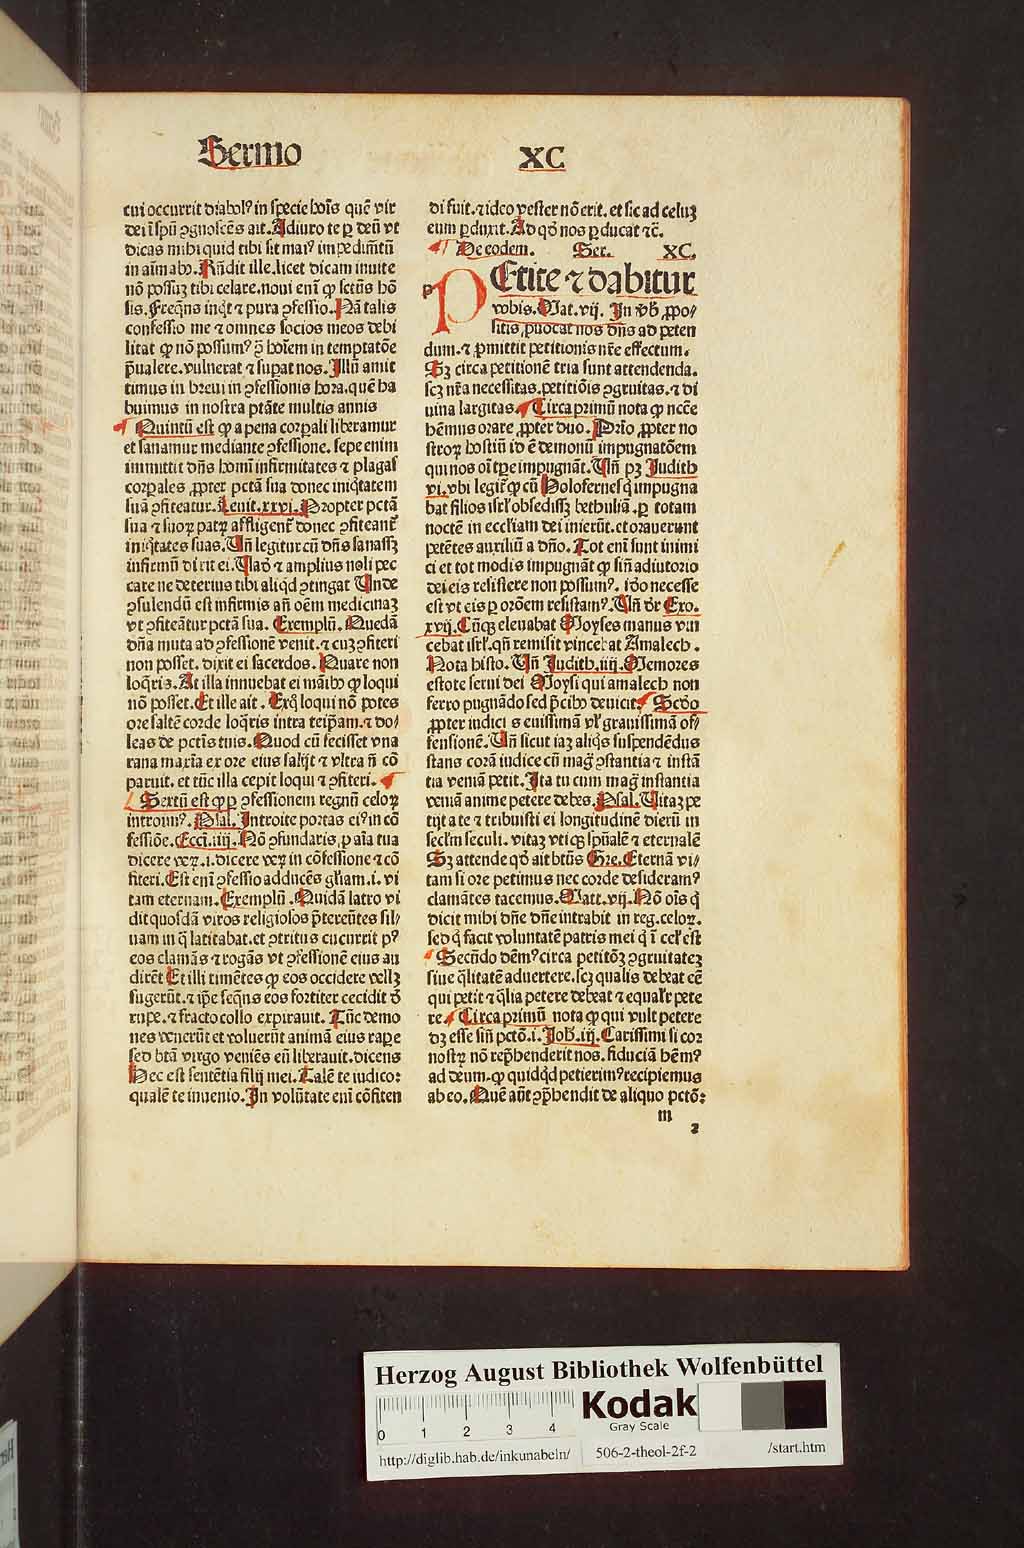 Sermo XC
cui occurrit diabolꝰ in specie hoīs quē vir
dei ī spū ꝯgnoscēs ait. Adiuro te ꝑ deū vt
dicas mihi quid tibi sit maiꝰ impedimētū
in aīmabꝰ. Rn̄dit ille. licet dicam inuite
nō possuꝫ tibi celare. noui enī ꝙ sctūs hō
lis. Freqn̄s inqͥt ⁊ pura ꝯfessio. Nā talis
confessio me ⁊ omnes socios meos debi
litat ꝙ nō possumꝰ ꝑ hoīem in temptatōe
p̄ualere. vulnerat ⁊ suꝑat nos. Illū amit
timus in breui in ꝯfessionis hora. quē ha
buimus in nostra ptāte multis annis
Quintū est ꝙ a pena corꝑali liberamur
et sanamur mediante ꝯfessione. sepe enim
immittit dn̄s homī infirmitates ⁊ plagas
corꝑales ꝓpter pctā sua donec iniqͥtatem
suā ꝯfiteatur. Leuit. xxvi. Propter pctā
sua ⁊ suoꝝ patꝝ affligent̄ donec ꝯfiteant̄
iniqͥtates suas. Vn̄ legitur cū dn̄s sanassꝫ
infirmū dixit ei. Vade ⁊ amplius noli pec
care ne deterius tibi aliqͥd ꝯtingat Vnde
ꝯsulendū est infirmis an̄ oēm medicinaꝫ
vt ꝯfiteātur pctā sua. Exemplū. Quedā
dn̄a muta ad ꝯfessionē venit. ⁊ cuꝫ ꝯfiteri
non posset. dixit ei sacerdos. Quare non
loqͥris. At illa innuebat ei māibꝰ ꝙ loqui
nō posset. Et ille ait. Exqͦ loqui nō potes
ore saltē corde loqͥris intra teip̄am. ⁊ do/
leas de pctīs tuis. Quod cū fecisset vna
rana maxīa ex ore eius saliit ⁊ vltra nō cō
paruit. et tūc illa cepit loqui ⁊ ꝯfiteri.
Sextū est ꝙ ꝑ ꝯfessionem regnū celoꝝ
introimꝰ. Psal. Introite portas eiꝰ in cō
fessiōe. Ecci. iiij. Nō ꝯfundaris ꝓ aīa tua
dicere veꝝ .i. dicere veꝝ in cōfessione ⁊ cō
fiteri. Est enī ꝯfessio adducēs gl̄iam .i. vi
tam eternam. Exemplū. Quidā latro vi
dit quosdā viros religiosos p̄tereūtes sil/
uam in qͣ latitabat. et ꝯtritus cucurrit pꝰ
eos clamās ⁊ rogās vt ꝯfessionē eius au
dirēt Et illi timētes ꝙ eos occidere vellꝫ
fugerūt. ⁊ ip̄e seqn̄s eos fortiter cecidit de
rupe. ⁊ fracto collo expirauit. Tūc demo
nes venerūt et voluerūt animā eius raꝑe
sed btā virgo veniēs eū liberauit. dicens
Hec est sentētia filij mei. Talē te iudico:
qualē te inuenio. In volūtate enī cōfiten
di fuit. ⁊ ideo vester nō erit. et sic ad celuꝫ
eum ꝑduxit. Ad qd̄ nos ꝑducat ⁊c̄.
De eodem. Ser. XC.
PEtite ⁊ dabitur
vobis. Mat. vij. In vb̄ ꝓpo/
sitis ꝓuocat nos dn̄s ad peten
dum. ⁊ ꝓmittit petitionis nr̄e effectum.
Sꝫ circa petitionē tria sunt attendenda.
scꝫ nr̄a necessitas. petitiōis ꝯgruitas. ⁊ di
uina largitas. Circa primū nota ꝙ ncc̄e
hēmus orare ꝓpter duo. Prīo ꝓpter no
stroꝝ hostiū id ē demonū impugnatōem
qui nos oī tꝑe impugnāt. Vn̄ pꝫ Judith
vi. vbi legit̄ ꝙ cū Holofernes qͥ impugna
bat filios isrl̄ obsedissꝫ bethuliā. ꝑ totam
noctē in eccl̄iam dei inierūt. et orauerunt
petētes auxiliū a dn̄o. Tot enī sunt inimi
ci et tot modis impugnāt ꝙ sin̄ adiutorio
dei eis resistere non possumꝰ. ideo necesse
est vt eis ꝑ orōem resistamꝰ. Vn̄ dr̄ Exo.
xvij. Cūqꝫ eleuabat Moyses manus vin
cebat isrl̄. qn̄ remisit vincebat Amalech.
Nota histo. Vn̄ Judith. iiij. Memores
estote serui dei Moysi qui amalech non
ferro pugnādo sed p̄cibꝰ deuicit. Scdo
ꝓpter iudicis euissimā vel grauissimā of/
fensionē. Vn̄ sicut iaꝫ aliqͥs suspendēdus
stans corā iudice cū magͣ ꝯstantia ⁊ instā
tia veniā petit. Ita tu cum magͣ instantia
veniā anime petere debes. Psal. Vitaꝫ pe
tijt a te ⁊ tribuisti ei longitudinē dierū in
secl̄m seculi. vitaꝫ vtiqꝫ sp̄ualē ⁊ eternalē
Sꝫ attende qd̄ ait btūs Gre. Eternā vi/
tam si ore petimus nec corde desideramꝰ
clamātes tacemus. Matt. vij. Nō oīs qͥ
dicit mihi dn̄e dn̄e intrabit in reg. celoꝝ.
sed qͥ facit voluntatē patris mei qͥ ī cel̄ est
Secūdo dēmꝰ circa petitōꝫ ꝯgruitateꝫ
siue qͣlitatē aduertere. scꝫ qualis debeat eē
qui petit ⁊ qͣlia petere debeat ⁊ equalr̄ pete
re. Circa primū nota ꝙ qui vult petere
dꝫ esse sin̄ pctō .i. Joh̄. iij. Carissimi si cor
nostꝝ nō rep̄henderit nos. fiduciā hēmꝰ
ad deum. ꝙ quidqͥd petierimꝰ recipiemus
ab eo. Quē aūt ꝯp̄hendit de aliquo pctō:
m
2
Herzog August Bibliothek Wolfenbüttel
0 1 2 3 4
Kodak
Gray Scale
http://diglib.hab.de/inkunabeln/ 506-2-theol-2f-2 /start.htm